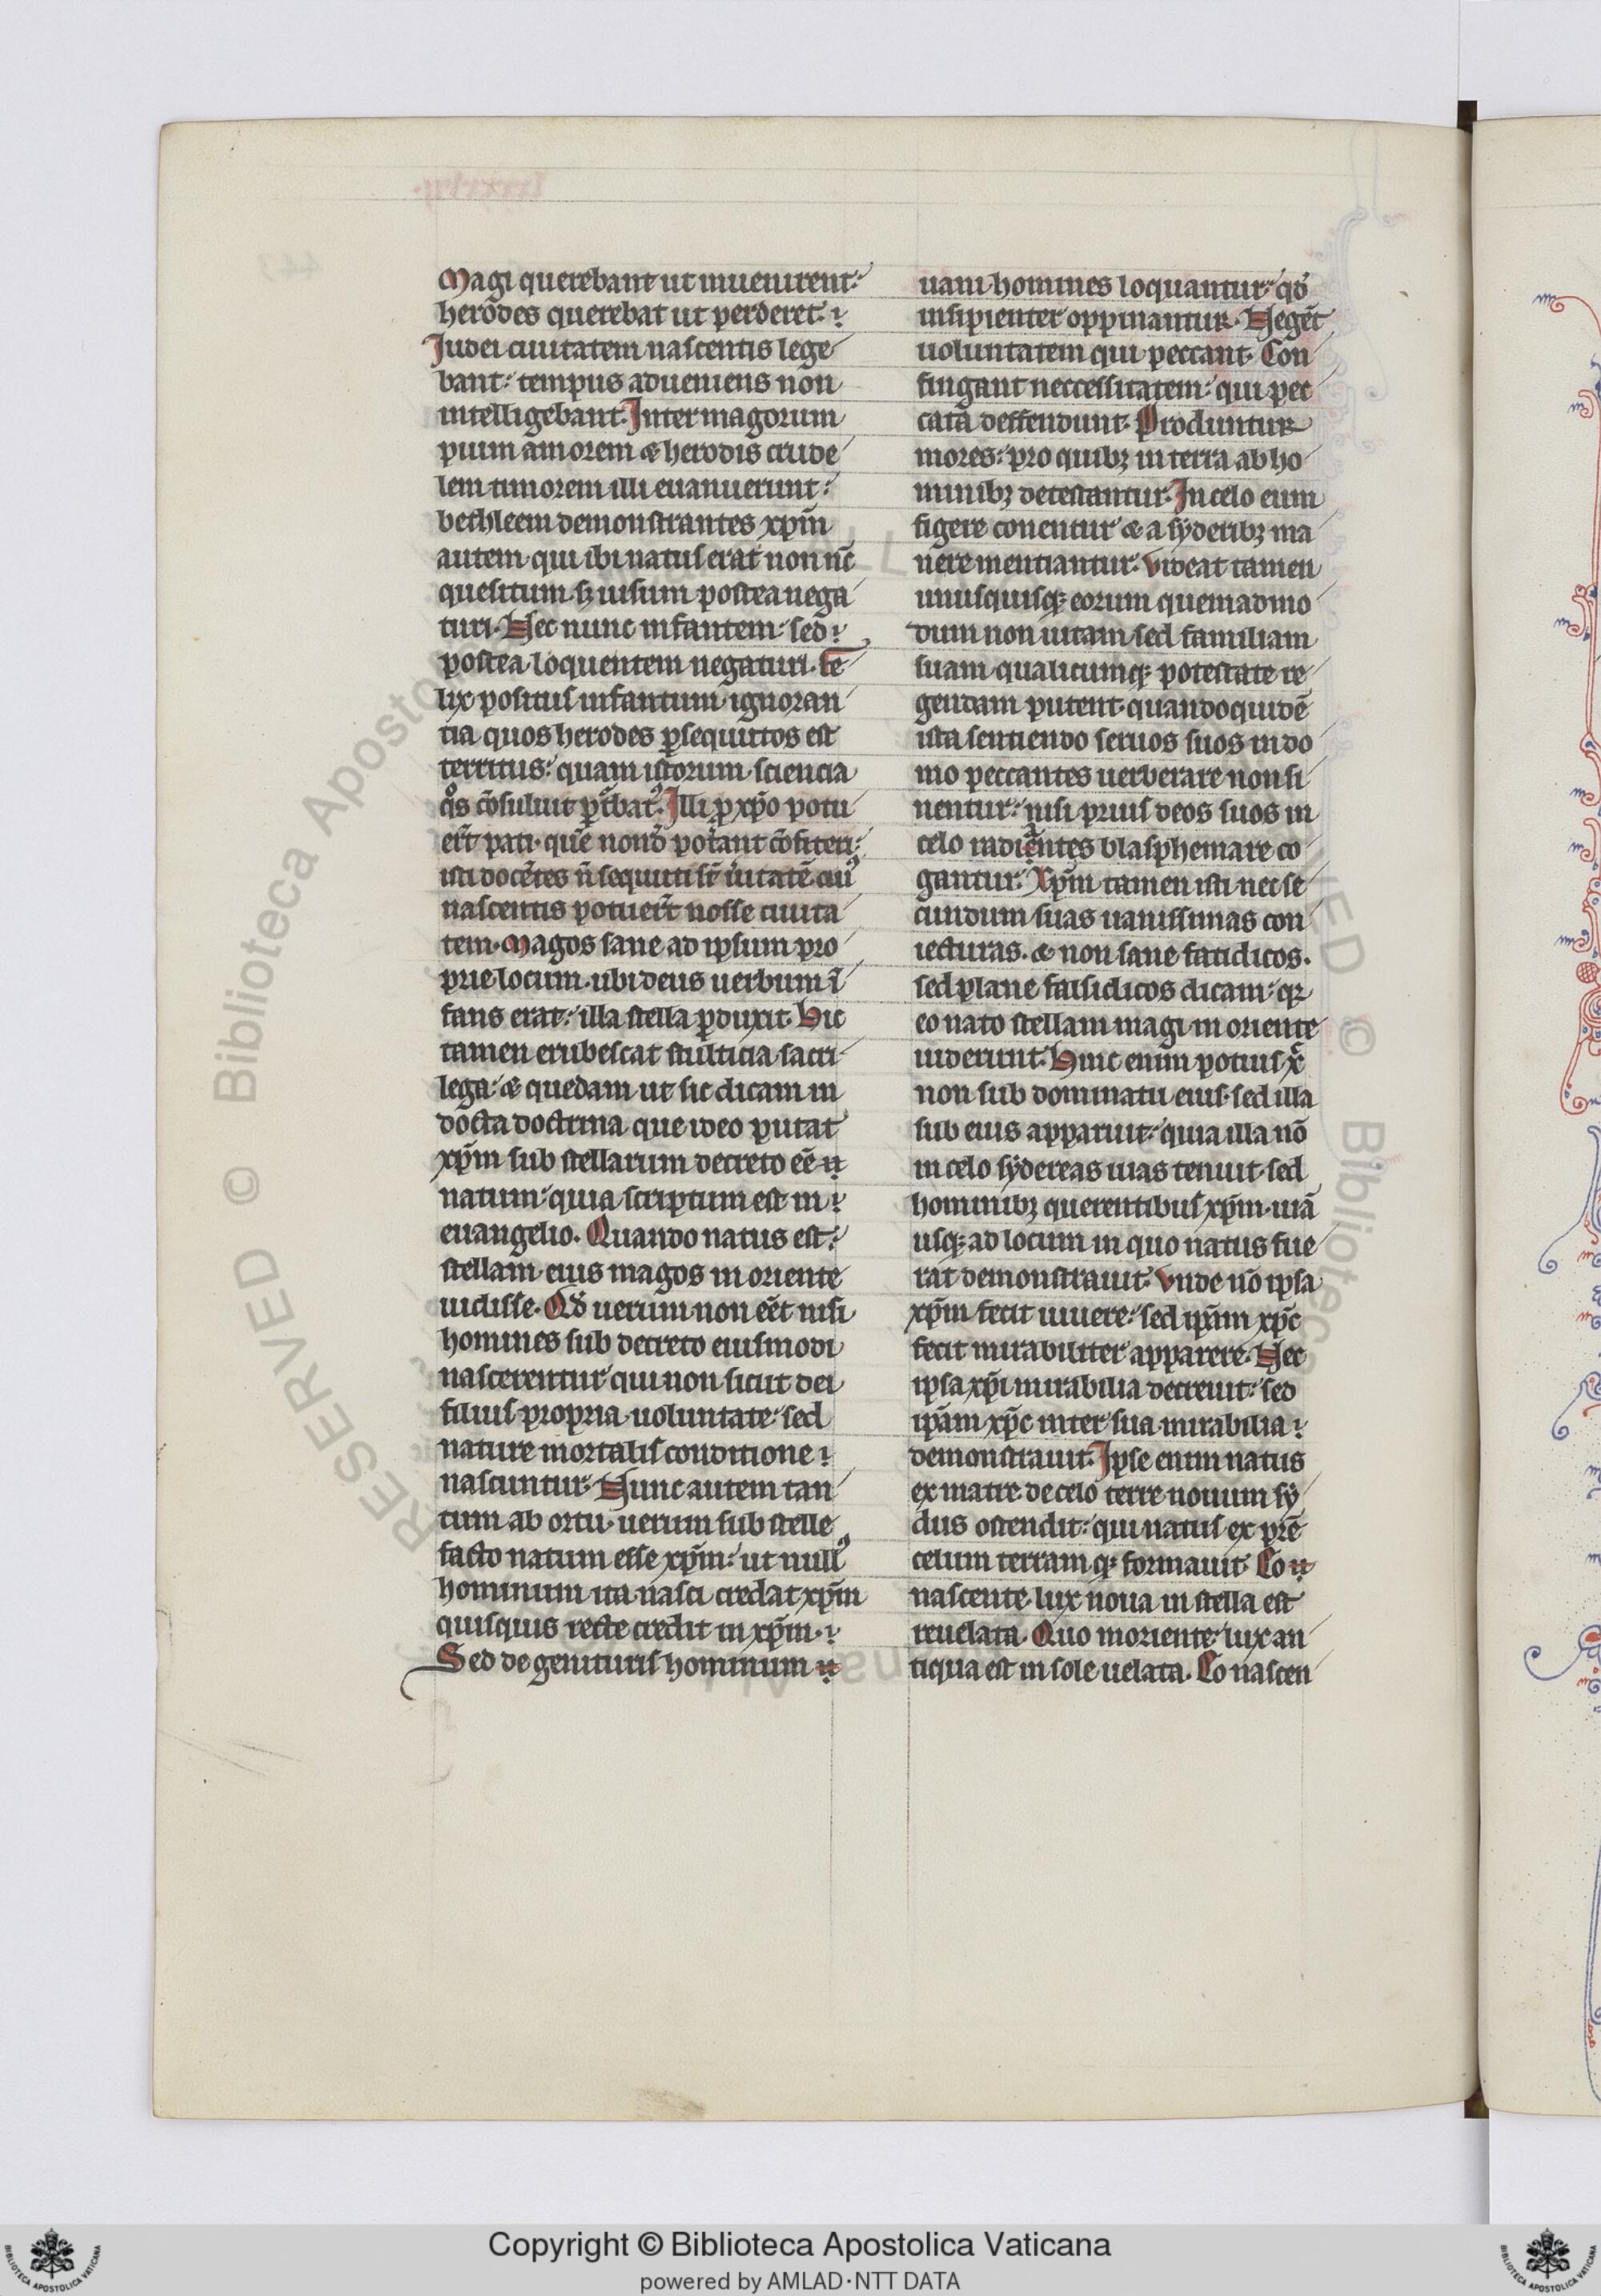 Magi querebant ut inuenirent:
herodes querebat ut perderet.
Iudei ciuitatem nascentis lege
bant: tempus adueniens non
intelligebant. Inter magorum
pium amorem & herodis crude
lem timorem illi euanuerunt:
bethleem demonstrantes xp̄m
autem qui ibi natus erat non nc̄
quesitum. sꝫ uisum postea nega
turi. Nec nunc infantem: sed
postea loquentem negaturi. fe
lix positus infantum ignoran
tia quos herodes ꝑsequutos est
territus: quam istorum sciencia
qͦs c̄osuluit ꝑt̄batꝰ. Illi ꝓ xp̄o potu
er̄t pati. quē nond̄ pot̄ant c̄ofiteri:
isti docētes n̄ sequuti st̄ u̓itatē. cuiꝰ
nascentis potuer̄t nosse ciuita
tem. Magos sane ad ipsum pro
prie locum. ubi deus uerbum ī
fans erat: illa stella ꝑduxit. Hic
tamen erubescat stulticia sacri
lega: & quedam ut sic dicam in
docta doctrina que ideo putat
xp̄m sub stellarum decreto eē
natum: quia scriptum est in
euangelio. Quando natus est:
stellam eius magos in oriente
uidisse. Qd̄ uerum non eēt nisi
homines sub decreto eiusmodi
nascerentur qui non sicut dei
filius propria uoluntate: sed
nature mortalis conditione
nascuntur. Nunc autem tan
tum ab ortu uerum sub stelle
facto natum esse xp̄m: ut nullꝰ
hominum ita nasci credat xp̄m
quisquis recte credit in xp̄m.
Sed de genituris hominum
uani homines loquantur: qd̄
insipienter oppinantur. Negēt
uoluntatem qui peccant. Con
fingant neccessitatem: qui pec
cata deffendunt. Produntur
mores: pro quibꝫ in terra ab ho
minibꝫ detestantur. In celo eum
figere conentur & a syderibꝫ ma
nere mentiantur. Videat tamen
unusquisqꝫ eorum quemadmo
dum non uitam sed familiam
suam qualicumqꝫ potestate re
gendam putent quandoquidē
ista sentiendo seruos suos in do
mo peccantes uerberare non si
nentur: nisi prius deos suos in
celo radientes blasphemare co
gantur. Xp̄m tamen isti nec se
cundum suas uanissimas con
iecturas. & non sane fatidicos.
sed plane falsidicos dicam: qꝫ
eo nato stellam magi in oriente
uiderunt. Hinc enim potius xc̄
non sub dominatu eius. sed illa
sub eius apparuit: quia illa nō
in celo sydereas uias tenuit. sed
hominibꝫ querentibus xp̄m. uiā
usqꝫ ad locum in quo natus fue
rat demonstrauit. Vnde nō ipsa
xp̄m fecit uiuere: sed ip̄am xp̄c
fecit mirabiliter apparere. Nec
ipsa xp̄i mirabilia decreuit: sed
ip̄am xp̄c inter sua mirabilia
demonstrauit. Ipse enim natus
ex matre de celo terre nouum sy
dus ostendit: qui natus ex prē
celum terramqꝫ formauit. Eo
nascente lux noua in stella est
reuelata. Quo moriente: lux an
tiqua est in sole uelata. Eo nascen
Copyright © Biblioteca Apostolica Vaticana
powered by AMLAD·NTT DATA